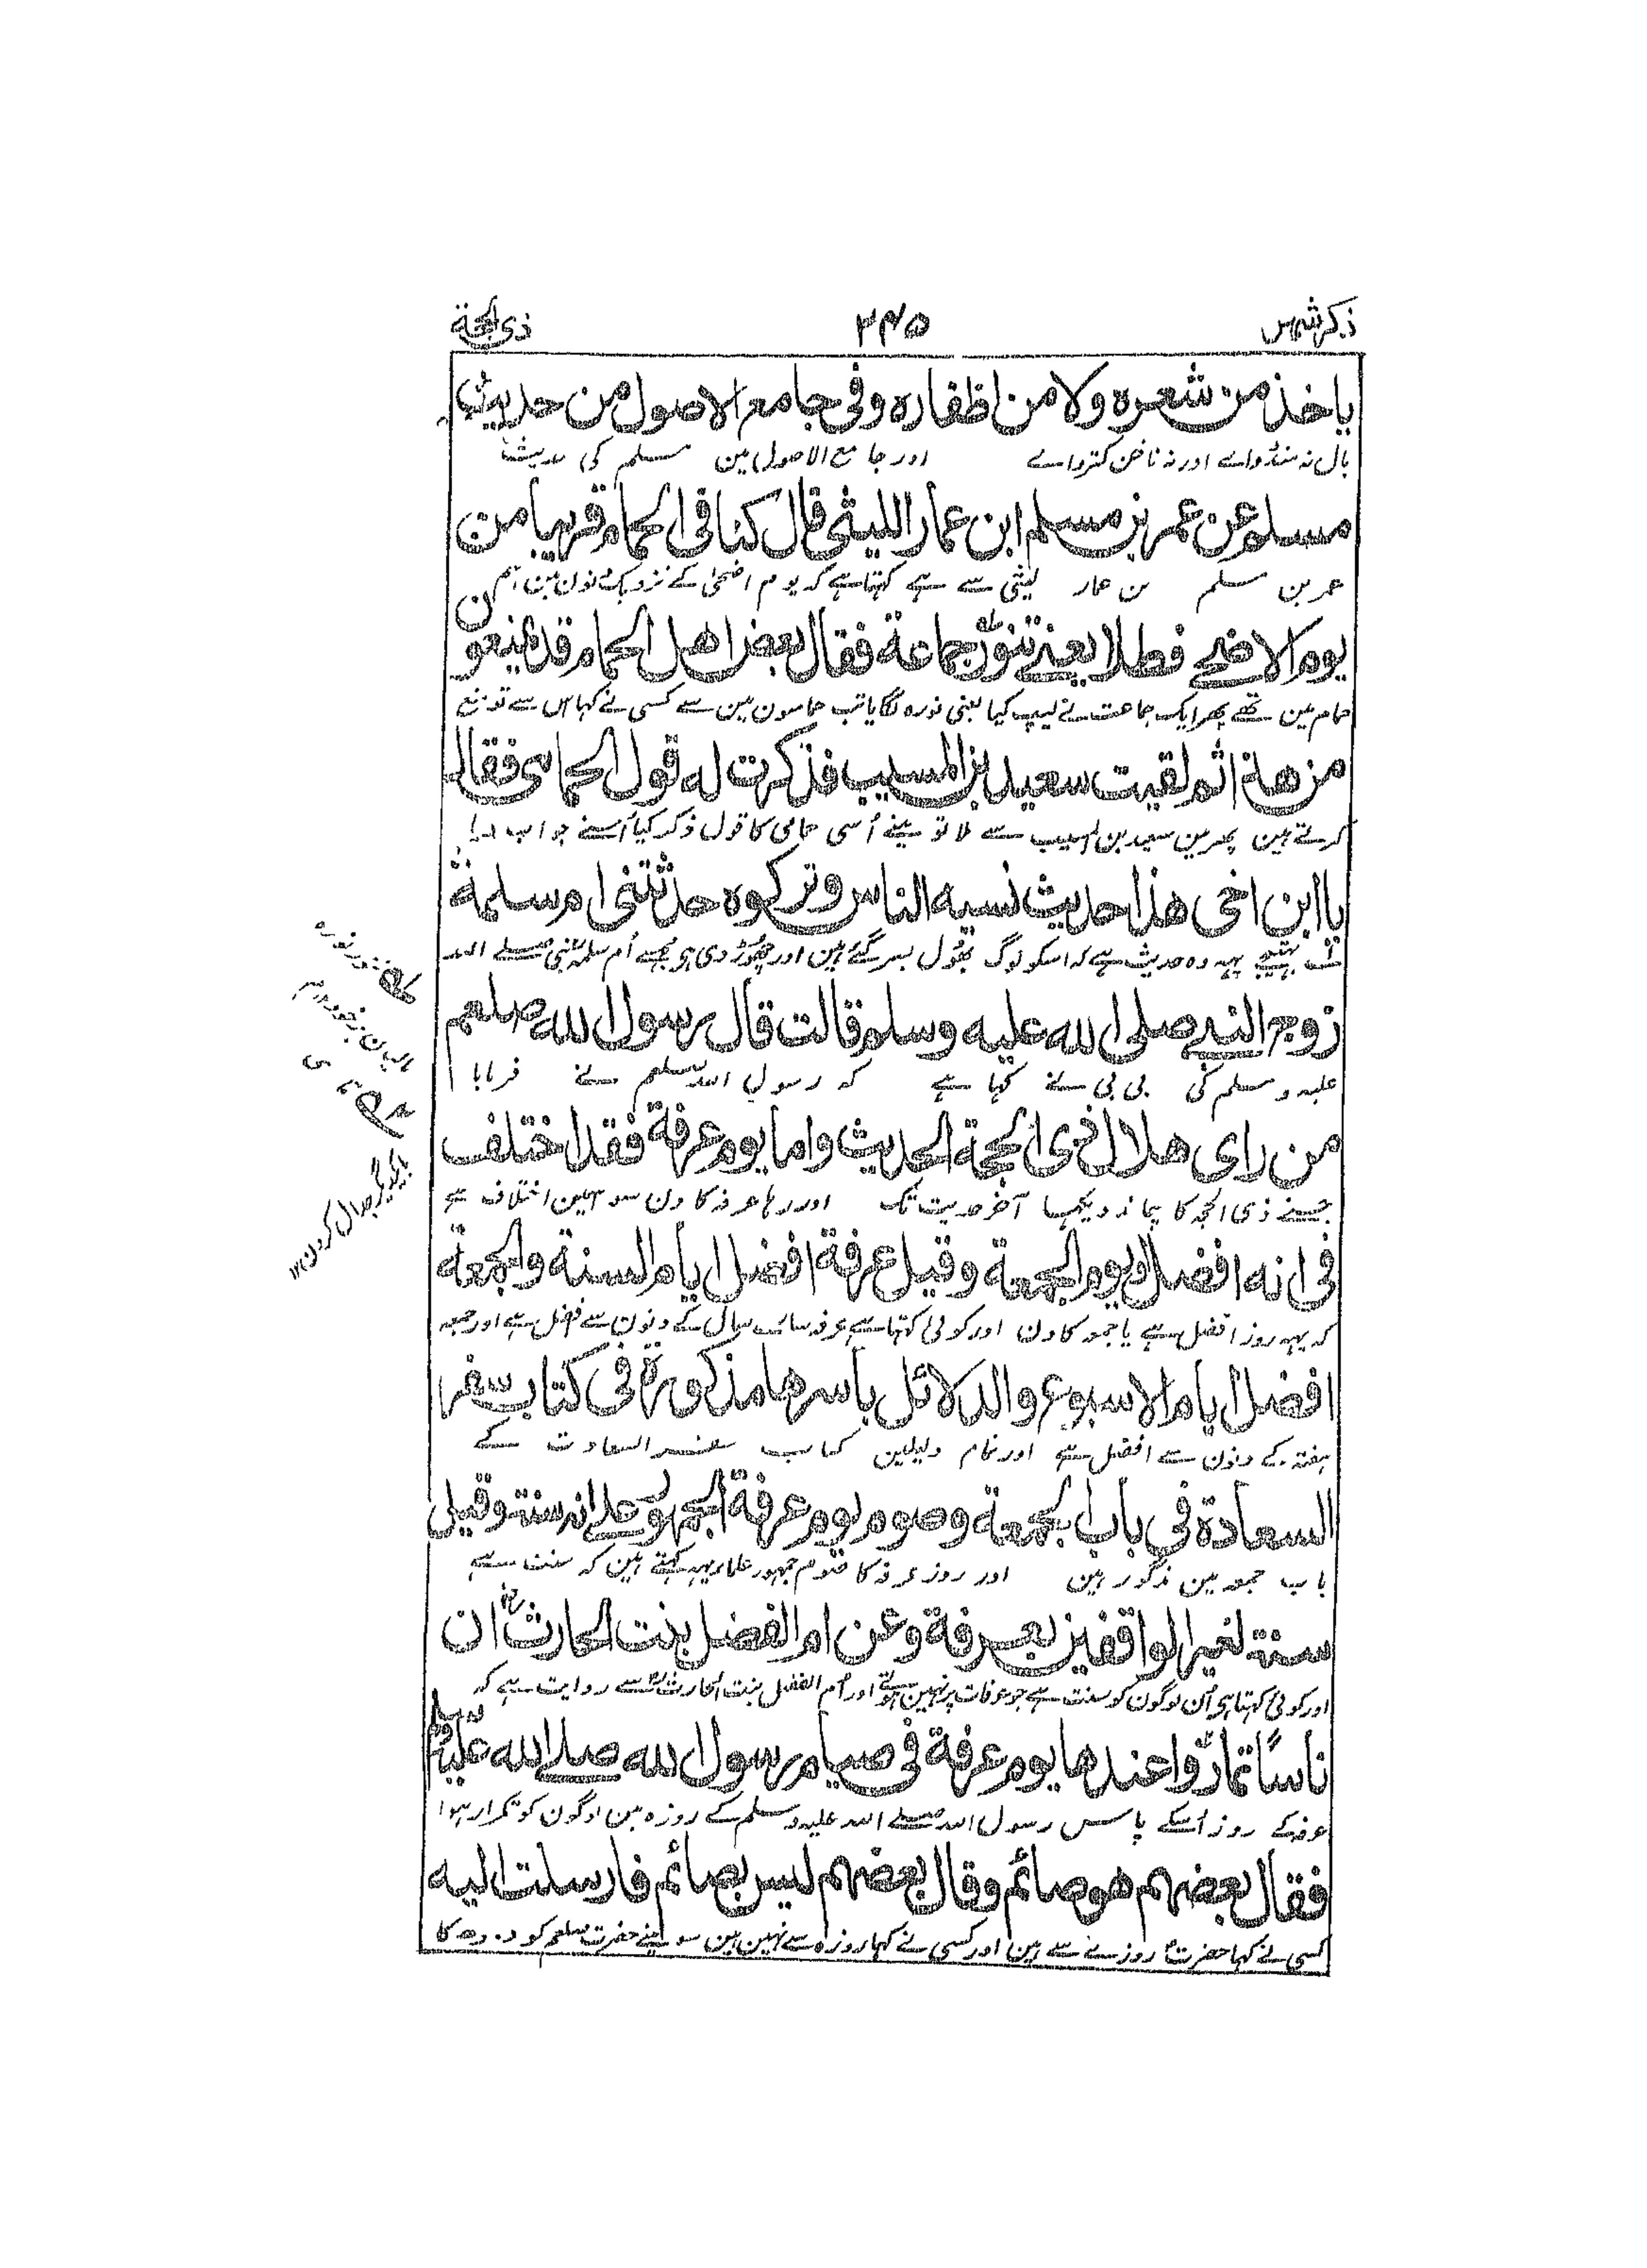 ذکر شہر ۳۴۵ ذی الحجة
یاخذ من شعره ولا من اظفاره وفی جامع الاصول من حدیث
بال نہ منڈواے اور نہ ناخن کترواے اور جامع الاصول مین مسلم کی حدیث
مسلم عن عمر بن مسلم ابن عمار اللیثی قال کنا فی الحمام قریبا من
عمر بن مسلم بن عمار لیثی سے ہے کہتا ہے کہ یوم اضحیٰ کے نزدیک دنون مین ہم
یوم الاضحے فطلا یعنے تنور جماعة فقال بعض اهل الحمام قد ینعون
حمام مین تھے پھر ایک جماعت نے لیپ کیا یعنی نورہ لگایا تب حامیون مین سے کسی نے کہا اس سے تو منع
من هذا ثم لقیت سعید بن المسیب فذکرت له قول الحمامی فقال
کرتے ہین پھر مین سعید بن المسیب سے ملا تو مینے اُسی حمامی کا قول ذکر کیا اُسنے جواب دیا
یا ابن اخی هذا حدیث نسیه الناس وترکوه حدثتنی ام سلمة
بھتیجے یہہ وہ حدیث ہے کہ اسکو لوگ بھول بسر گئے ہین اور چھوڑ دی ہی مجھسے اُم سلمہ نبی صلے اللہ
زوج النبے صلی الله علیه وسلم قالت قال رسول الله صلعم
علیہ وسلم کی بی بی نے کہا ہے کہ رسول اللہ صلعم نے فرمایا
من رای هلال ذی الحجة الحدیث واما یوم عرفة فقد اختلف
جسنے ذی الحجہ کا چاند دیکھا آخر حدیث تک اور رہا عرفہ کا دن سو اسمین اختلاف ہے
فی انه افضل او یوم الجمعة وقیل عرفة افضل ایام السنة والجمعة
کہ یہہ روز افضل ہے یا جمعہ کا دن اور کوئی کہتا ہے عرفہ سارے سال کے دنون سے افضل ہے اور جمعہ
افضل ایام الاسبوع والدلائل باسرها مذکورة فی کتاب سفر
ہفتہ کے دنون سے افضل ہے اور تمام دلیلین کتاب سفر السعادت کے
السعادة فی باب الجمعة وصوم یوم عرفة الجمهور علے انه سنة وقیل
باب جمعہ مین مذکور ہین اور روز عرفہ کا صوم جمہور علما یہہ کہتے ہین کہ سنت ہے
سنة لغیر الواقفین بعرفة وعن ام الفضل بنت الحارث ان
اور کوئی کہتا ہی اُن لوگون کو سنت ہے جو عرفات پر نہین ہوتے اور اُم الفضل بنت الحارث سے روایت ہے کہ
ناسًا تماروا عندها یوم عرفة فی صیام رسول الله صلے الله علیه وسلم
عرفہ کے روز اُسکے پاس رسول اللہ صلے اللہ علیہ وسلم کے روزہ مین لوگون کو تکرار ہوا
فقال بعضهم هو صائم وقال بعضهم لیس بصائم فارسلت الیه
کسی نے کہا حضرت روزے سے ہین اور کسی نے کہا روزہ سے نہین ہین سو مینے حضرت صلعم کو دودھ کا
تنور نورہ
بایکدیگر جدال کردن ۱۲